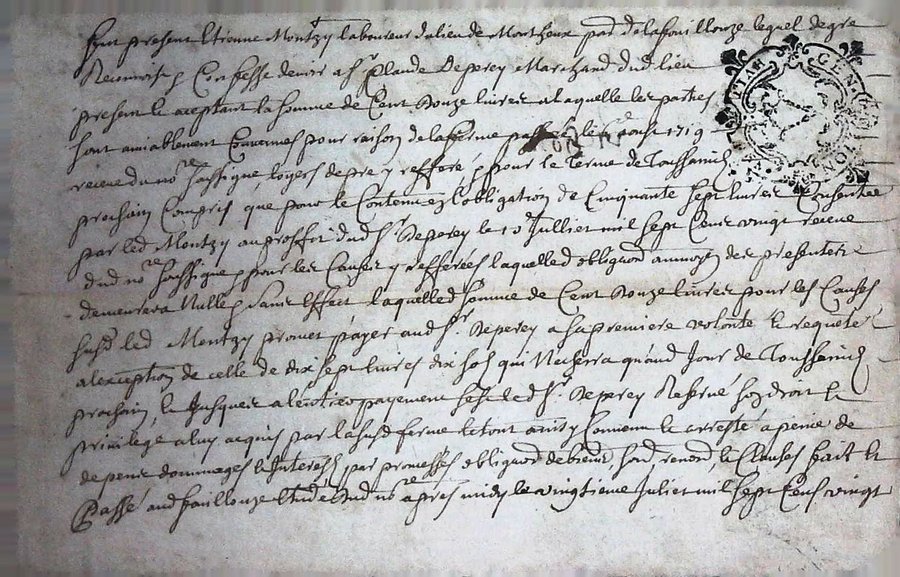 fut present Etienne Montzy laboureur du lieu de Montheux par de la foüillouze lequel de gre
Reconnoit & Confesse devoir a sr Claude Deperey Marchand dud lieu
present & aceptant la somme de Cent Onze livres a laquelle les parties
sont amiablement Convenues pour raison de la ferme le 6 aout 1719
receue du no.re soussigné, loyers de pre y refferé, & pour le Terme de Toussainct
prochain Compris que pour le Contenu en l'obligation de Cinquante sept livres Consentie
par led Montzy au proffit dud sr Deperey le 10 Juilliet mil sept Cent vingt receue
dud no.re soussigné, pour les Causes y refferées laquelled obligaon au moyen des presentes
demeurera Nulle & sans Effect laquelled somme de Cent Onze livres pour les Causes
susd led Montzy promet payer aud sr Deperey a sa premiere volonté & requete
a l'exception de celle de dix sept livres dix sols qui Ne sera qu'aud Jour de Toussainct
prochain, & Jusques a l'entier payement led sr Deperey Reservé son droit &
privilege a luy acquis par la susd ferme le tout ainsy Convenu & arresté a peine de
depens dommages & Interests, par promesses obligaon de biens, soub, renon, & Clauses fait &
Passé aud foüillouze Etude dud no.re apres midy le vingtieme Juliet mil sept Cent vingt
GEN